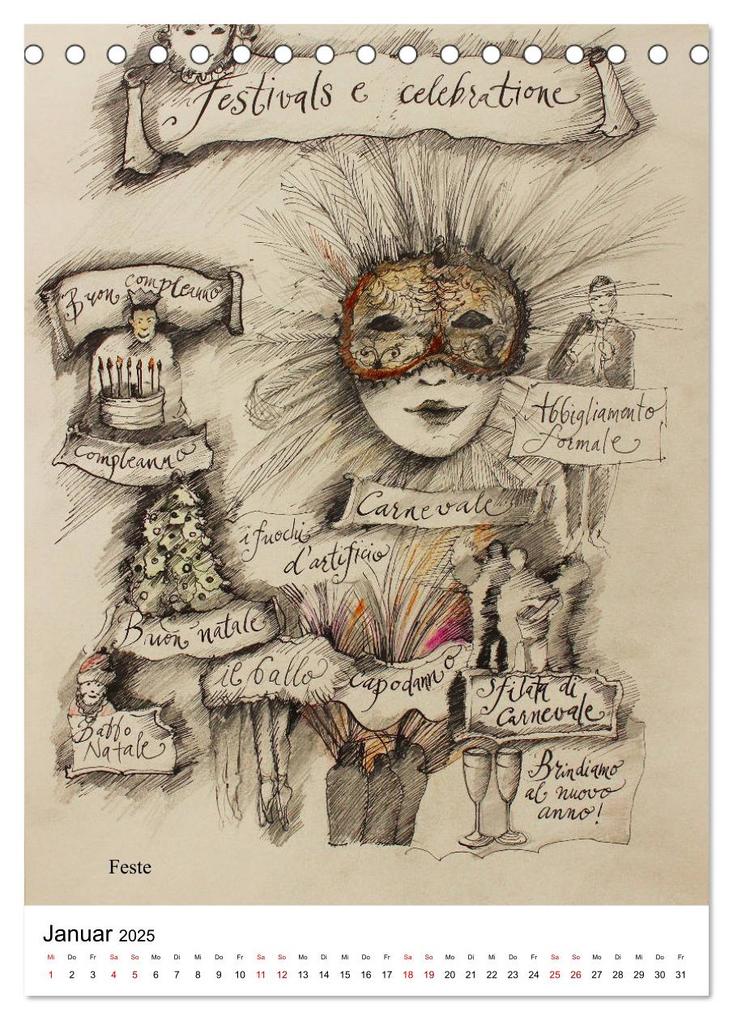 Festivals e celebratione
Buon compleanno
Abbigliamento
formale
compleanno
Carnevale
i fuochi
d'artificio
Buon natale
il ballo
capodanno
Sfilata di
Carnevale
Babbo
Natale
Brindiamo
al nuovo
anno!
Feste
Januar 2025
Mi Do Fr Sa So Mo Di Mi Do Fr Sa So Mo Di Mi Do Fr Sa So Mo Di Mi Do Fr Sa So Mo Di Mi Do Fr
1 2 3 4 5 6 7 8 9 10 11 12 13 14 15 16 17 18 19 20 21 22 23 24 25 26 27 28 29 30 31